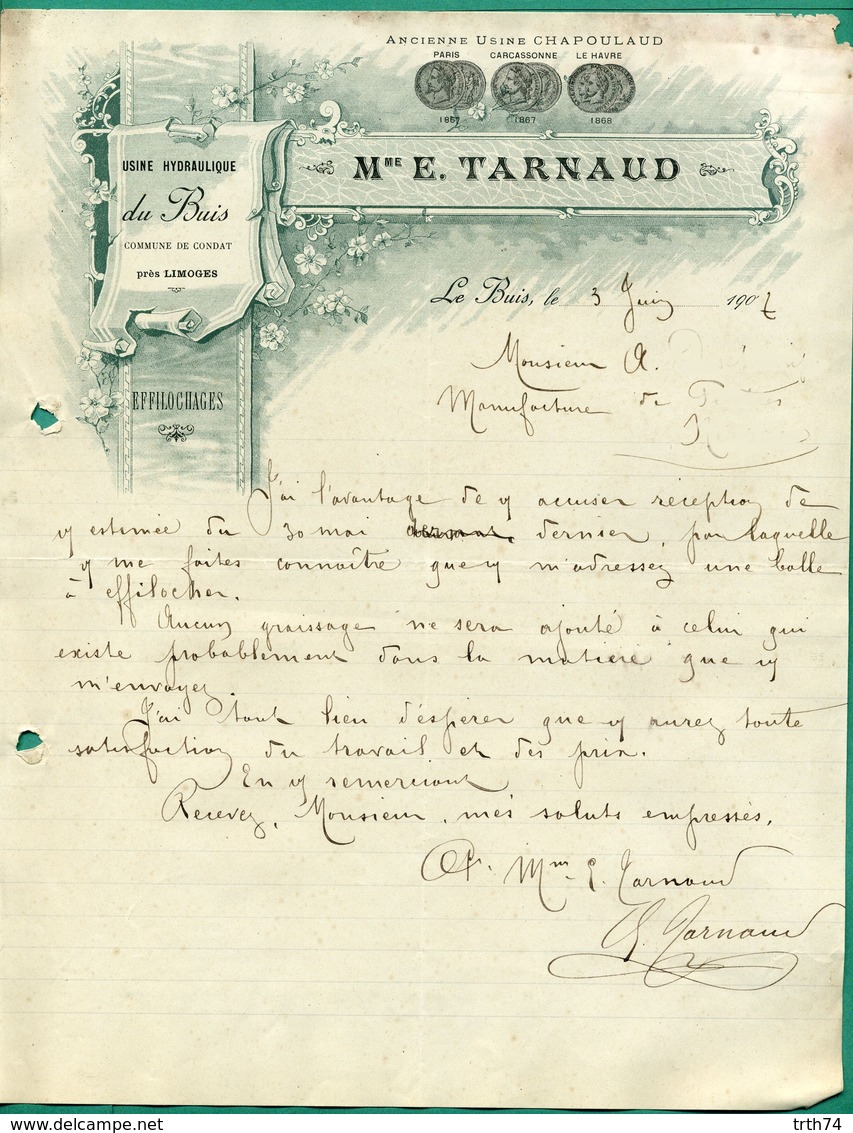 ANCIENNE USINE CHAPOULAUD
PARIS CARCASSONNE LE HAVRE
1867 1867 1868
MME E. TARNAUD
USINE HYDRAULIQUE
du Buis
COMMUNE DE CONDAT
près LIMOGES
EFFILOCHAGES
Le Buis, le 3 Juin 1907
Monsieur A.
Manufacture de
J'ai l'avantage de v accuser réception de
v estimée du 30 mai dernier, par laquelle
v me faites connaître que v m'adressez une balle
à effilocher.
Aucun graissage ne sera ajouté à celui qui
existe probablement dans la matière que v
m'envoyez.
J'ai tout lieu d'espérer que v aurez toute
satisfaction du travail et des prix.
En v remerciant
Recevez, Monsieur, mes saluts empressés,
Mme E. Tarnaud
Tarnaud
trth74